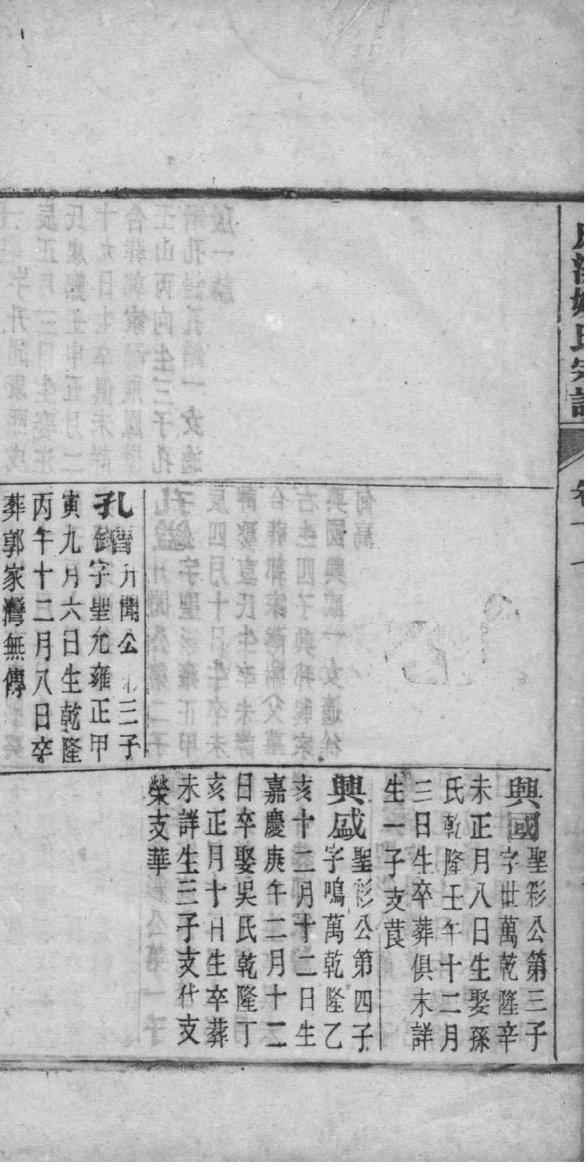 氏宗譜
興國聖彩公第三子
字世萬乾隆辛
未正月八日生娶孫
氏乾隆壬午十二月
三日生卒葬俱未詳
生一子支莨
興盛聖彩公第四子
字鳴萬乾隆乙
亥十二月十二日生
嘉慶庚午二月十二
日卒娶吳氏乾隆丁
亥正月十日生卒葬
未詳生三子支仕支
榮支華
孔 升聞公 三子
字聖允雍正甲
寅九月六日生乾隆
丙午十二月八日卒
葬郭家灣無傳